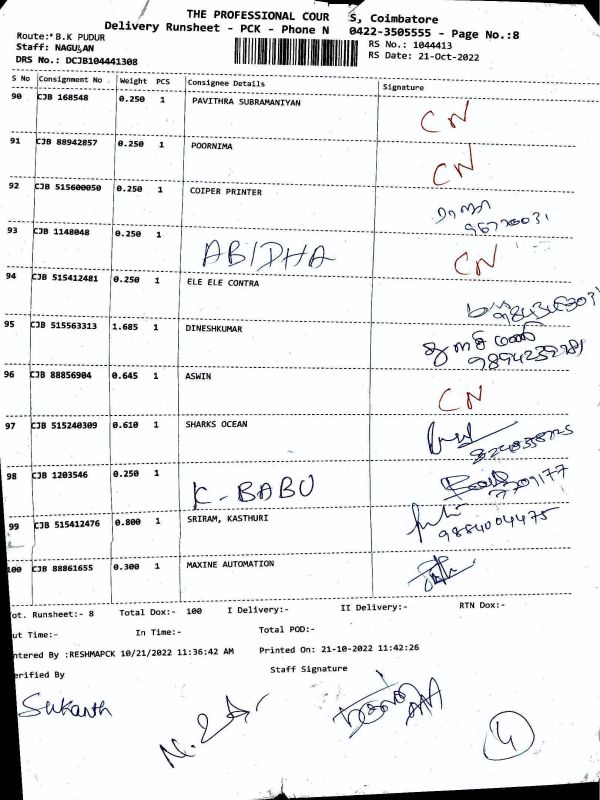 THE PROFESSIONAL COUR S, Coimbatore
Delivery Runsheet - PCK - Phone N 0422-3505555 - Page No.:8
Route:* B.K PUDUR
RS No.: 1044413
Staff: NAGULAN
RS Date: 21-Oct-2022
DRS No.: DCJB104441308
S No Consignment No Weight PCS Consignee Details Signature
90 CJB 168548 0.250 1 PAVITHRA SUBRAMANIYAN CN
91 CJB 88942857 0.250 1 POORNIMA CN
92 CJB 515600050 0.250 1 COIPER PRINTER
93 CJB 1148048 0.250 1 ABIDHA CN
94 CJB 515412481 0.250 1 ELE ELE CONTRA
95 CJB 515563313 1.685 1 DINESHKUMAR
96 CJB 88856904 0.645 1 ASWIN CN
97 CJB 515240309 0.610 1 SHARKS OCEAN
98 CJB 1203546 0.250 1 K-BABU
99 CJB 515412476 0.800 1 SRIRAM, KASTHURI 9884004475
100 CJB 88861655 0.300 1 MAXINE AUTOMATION
ot. Runsheet:- 8 Total Dox:- 100 I Delivery:- II Delivery:- RTN Dox:-
ut Time:- In Time:- Total POD:-
ntered By :RESHMAPCK 10/21/2022 11:36:42 AM Printed On: 21-10-2022 11:42:26
erified By Staff Signature
4